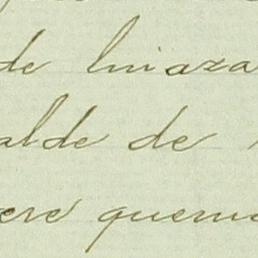 de linaza
alde de
ere quema